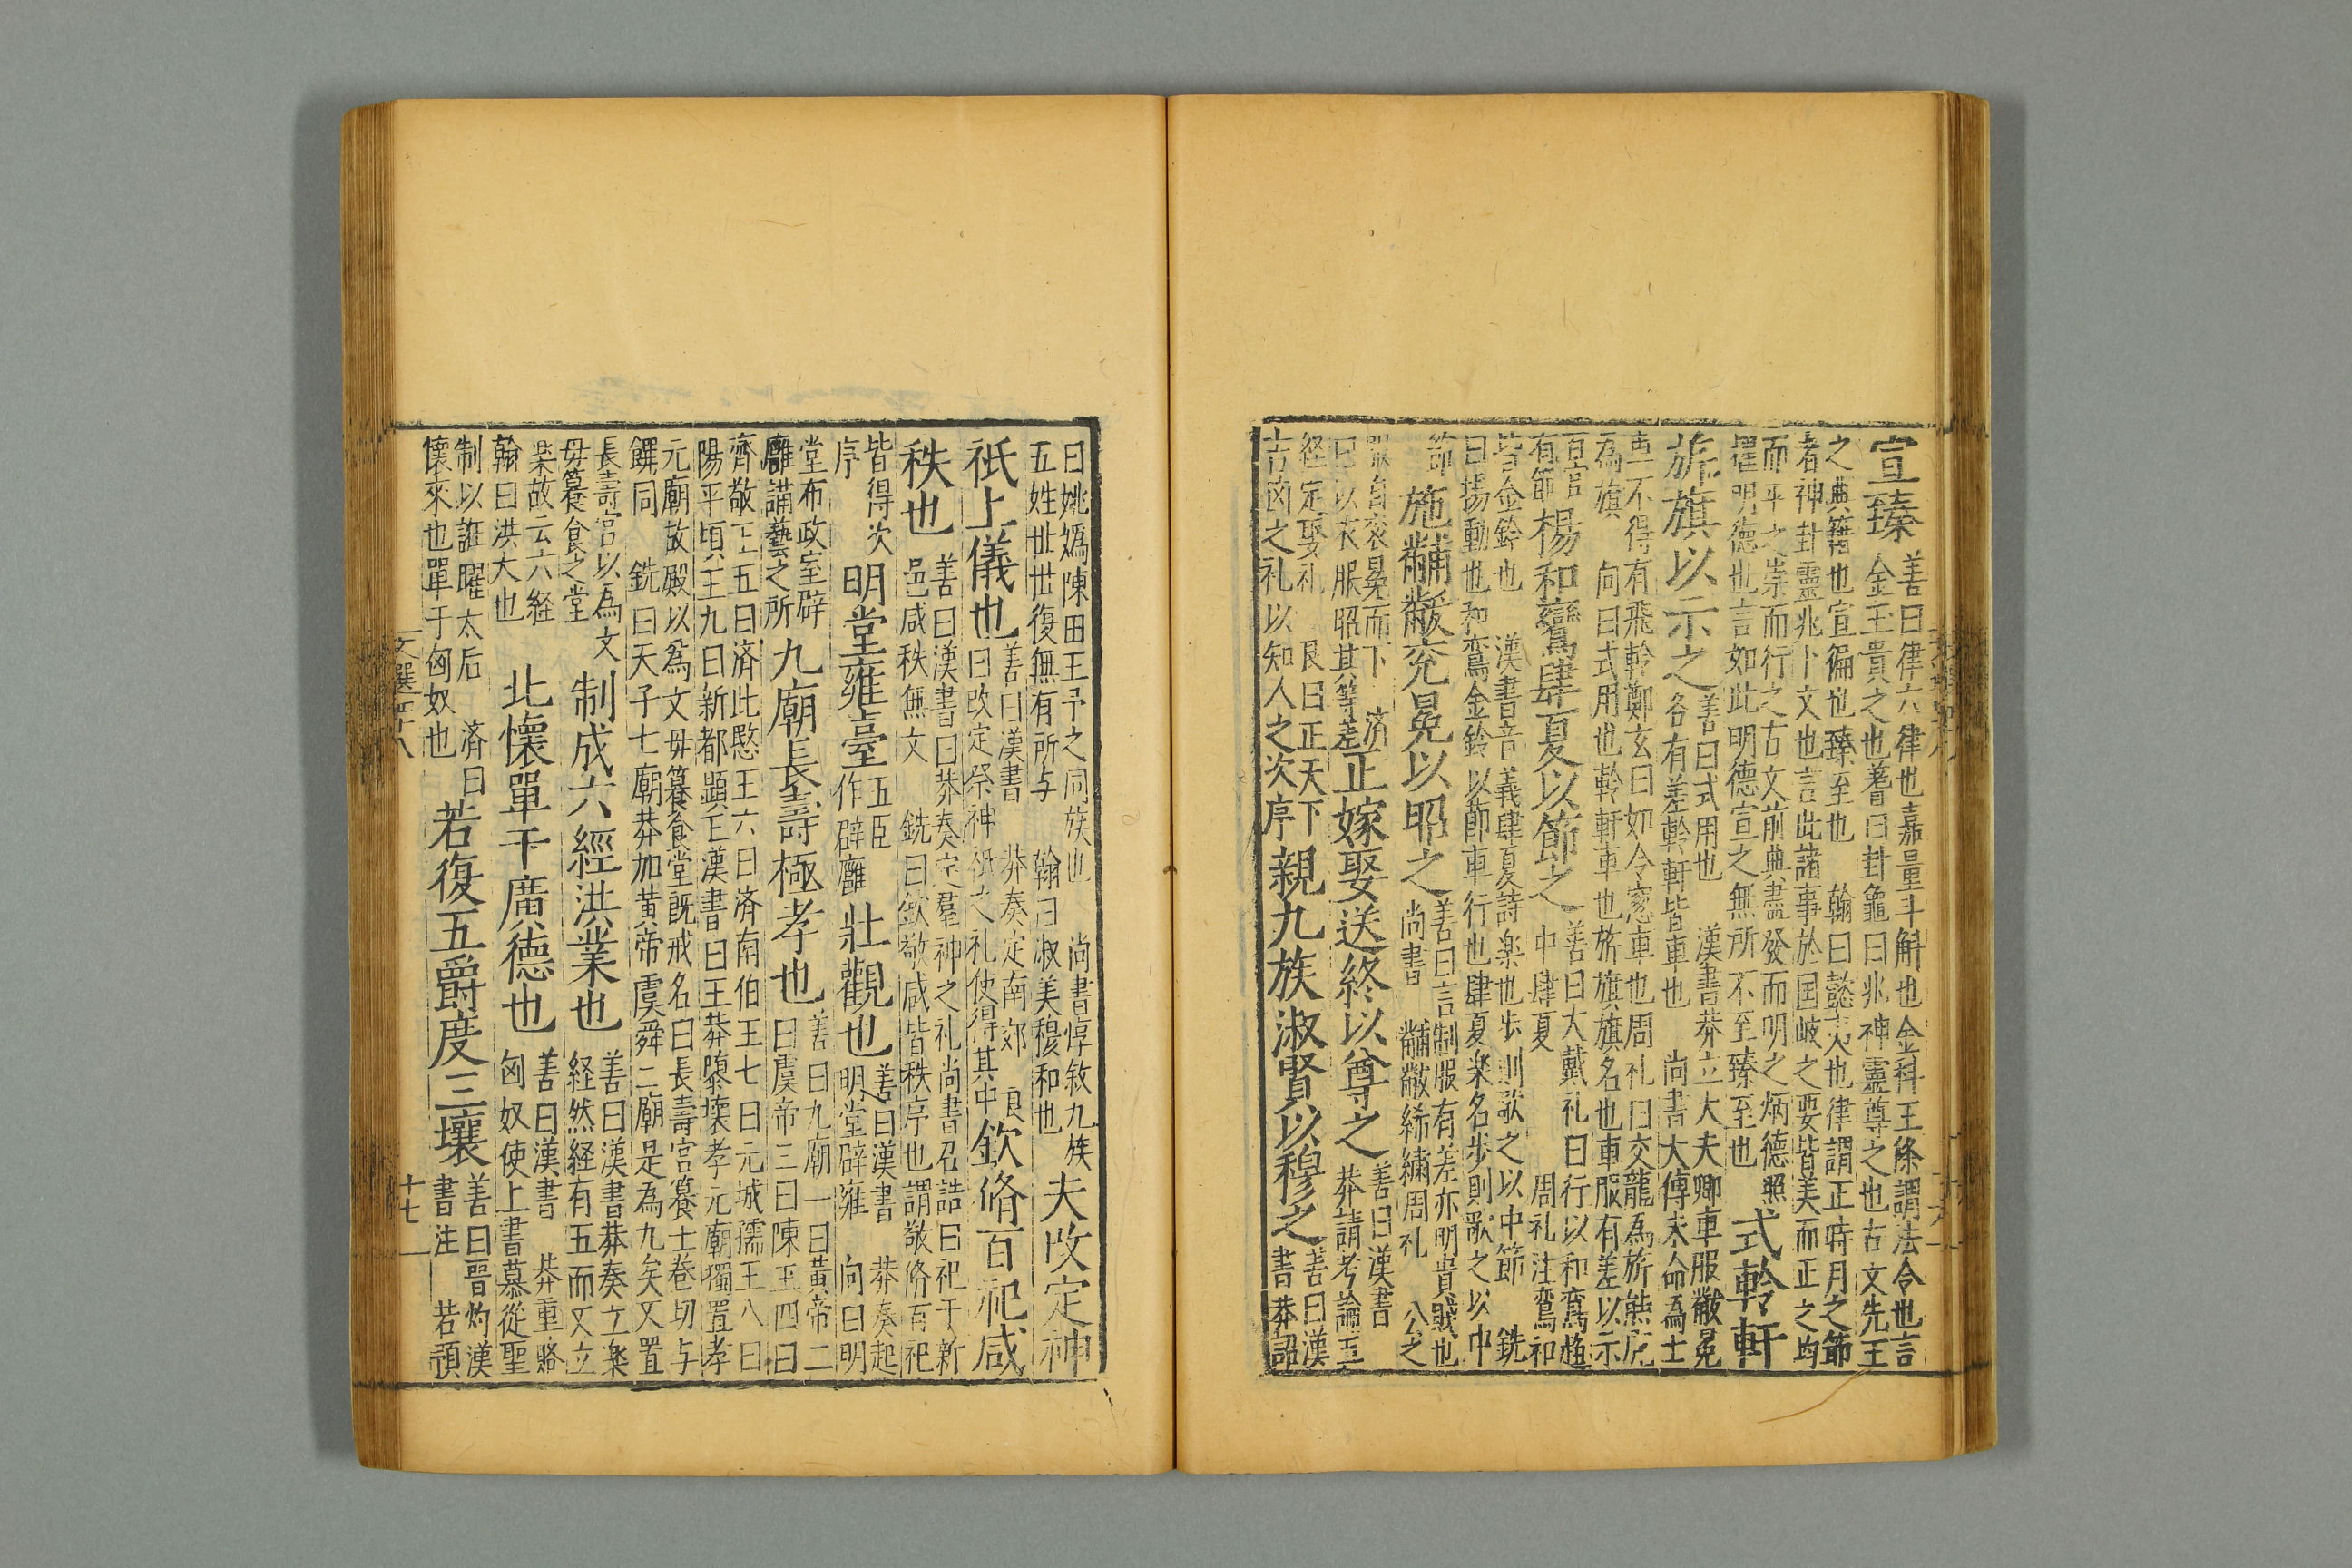 宣臻
善曰律六律也嘉量斗斛也金科玉條謂法令也言
金玉貴之也蓍曰卦龜曰兆神靈尊之也古文先王
之典籍也宣徧也臻至也 翰曰懿美也律謂正時月之節
者神卦靈兆卜文也言此諸事於国岐之要皆美而正之均
而平之崇而行之古文前典盡發而明之炳德照
燿明德也言如此明德宣之無所不至臻至也
式軨軒
旂旗以示之
善曰式用也 漢書莽立大夫卿車服黻冕
各有差軨軒皆車也 尚書大傳未命為士
車不得有飛軨鄭玄曰如今窓車也周礼曰交龍為旂熊虎
為旗 向曰式用也軨軒車也旂旗旗名也車服有差以示
百官
有節
楊和鸞肆夏以節之
善曰大戴礼曰行以和鸞趨
中肆夏 周礼注鸞和
皆金鈴也 漢書音義肆夏詩楽也步則歌之以中節 銑
曰揚動也和鸞金鈴以節車行也肆夏楽名步則歌之以中
節
施黼黻衮冕以昭之
善曰言制服有差亦明貴賎也
尚書 黼黻絺繡周礼 公之
服自衮冕而下 済
曰以衣服昭其等差
正嫁娶送終以尊之
善曰漢書
莽請考論五
経定娶礼 良曰正天下
吉凶之礼以知人之次序
親九族淑賢以穆之
善曰漢
書莽詔
曰姚媯陳田王予之同族也 尚書惇敘九族
五姓世世復無有所与 翰曰淑美穆和也
夫改定神
祇上儀也
善曰漢書 莽奏定南郊 良
曰改定祭神祇之礼使得其中
欽脩百祀咸
秩也
善曰漢書曰莽奏定羣神之礼尚書召誥曰祀于新
邑咸秩無文 銑曰欽敬咸皆秩序也謂敬脩百祀
皆得次
序
明堂雍臺
五臣
作辟廱
壯觀也
善曰漢書 莽奏起
明堂辟雍 向曰明
堂布政室辟
廱講藝之所
九廟長壽極孝也
善曰九廟一曰黃帝二
曰虞帝三曰陳王四曰
齊敬王五曰済北愍王六曰済南伯王七曰元城孺王八曰
陽平頃王九曰新都顯王漢書曰王莽隳壞孝元廟獨置孝
元廟故殿以為文母篹食堂既成名曰長壽宮篹士卷切与
饌同 銑曰天子七廟莽加黃帝虞舜二廟是為九矣又置
長壽宮以為文
母篹食之堂
制成六經洪業也
善曰漢書莽奏立楽
経然経有五而又立
楽故云六経
翰曰洪大也
北懷單于廣德也
善曰漢書 莽重賂
匈奴使上書慕從聖
制以誑曜太后 済曰
懷來也單于匈奴也
若復五爵度三壤
善曰晉灼漢
書注 若預
文選四十八
十七